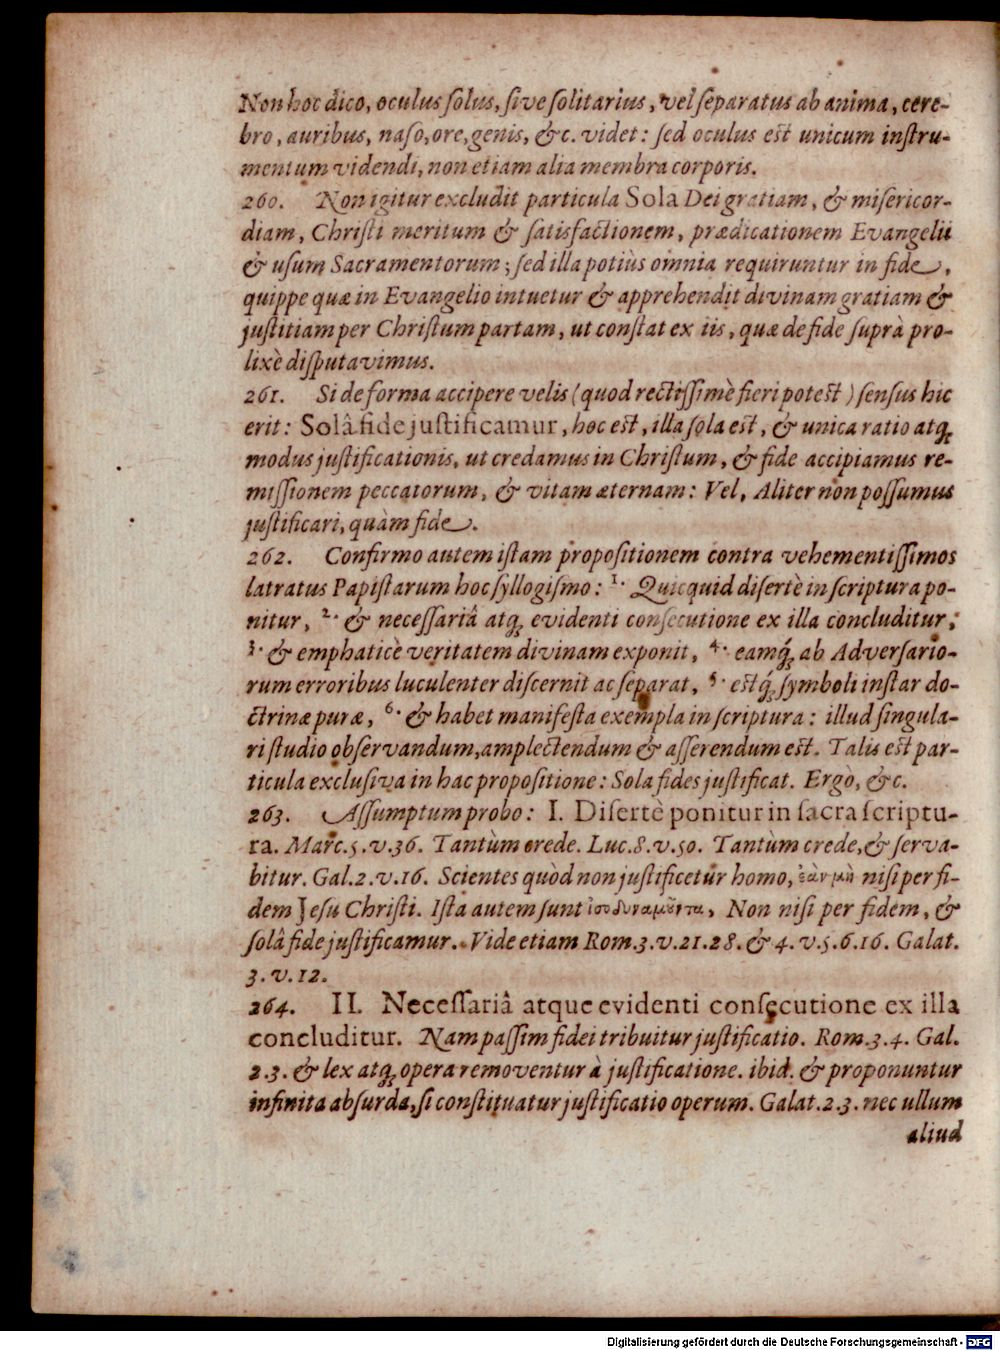 Non hoc dico, oculus ſolus, ſive ſolitarius, vel ſeparatus ab anima, cere-
bro, auribus, naſo, ore, genis, &c. videt: ſed oculus est unicum inſtru-
mentum videndi, non etiam alia membra corporis.
260. Non igitur excludit particula Sola Dei gratiam, & miſericor-
diam, Chriſti meritum & ſatisfactionem, prædicationem Evangelii
& uſum Sacramentorum; ſed illa potiùs omnia requiruntur in fide,
quippe quæ in Evangelio intuetur & apprehendit divinam gratiam &
juſtitiam per Chriſtum partam, ut conſtat ex iis, quæ de fide ſuprà pro-
lixè diſputavimus.
261. Si de forma accipere velis (quod rectiſſimè fieri potest) ſenſus hic
erit: Solâ fide juſtificamur, hoc est, illa ſola est, & unica ratio atq;
modus juſtificationis, ut credamus in Chriſtum, & fide accipiamus re-
miſſionem peccatorum, & vitam æternam: Vel, Aliter non poſſumus
juſtificari, quàm fide.
262. Confirmo autem iſtam propoſitionem contra vehementiſſimos
latratus Papiſtarum hoc ſyllogiſmo: 1. Quicquid diſertè in ſcriptura po-
nitur, 2. & neceſſariâ atq; evidenti conſecutione ex illa concluditur;
3. & emphaticè veritatem divinam exponit, 4. eamq́; ab Adverſario-
rum erroribus luculenter diſcernit ac ſeparat, 5. estq́; ſymboli inſtar do-
ctrinæ puræ, 6. & habet manifeſta exempla in ſcriptura: illud ſingula-
ri ſtudio obſervandum, amplectendum & aſſerendum est. Talis est par-
ticula excluſiva in hac propoſitione: Sola fides juſtificat. Ergò, &c.
263. Aſſumptum probo: I. Diſertè ponitur in ſacra ſcriptu-
ra. Marc. 5. v. 36. Tantùm crede. Luc. 8. v. 50. Tantùm crede, & ſerva-
bitur. Gal. 2. v. 16. Scientes quòd non juſtificetur homo, ἐὰν μὴ niſi per fi-
dem Jeſu Chriſti. Iſta autem ſunt ἰσοδυναμοῦντα, Non niſi per fidem, &
ſolâ fide juſtificamur. Vide etiam Rom. 3. v. 21. 28. & 4. v. 5. 6. 16. Galat.
3. v. 12.
264. II. Neceſſariâ atque evidenti conſecutione ex illa
concluditur. Nam paſſim fidei tribuitur juſtificatio. Rom. 3. 4. Gal.
2. 3. & lex atq; opera removentur à juſtificatione. ibid. & proponuntur
infinita abſurda, ſi conſtituatur juſtificatio operum. Galat. 2. 3. nec ullum
aliud
Digitalisierung gefördert durch die Deutsche Forschungsgemeinschaft - DFG